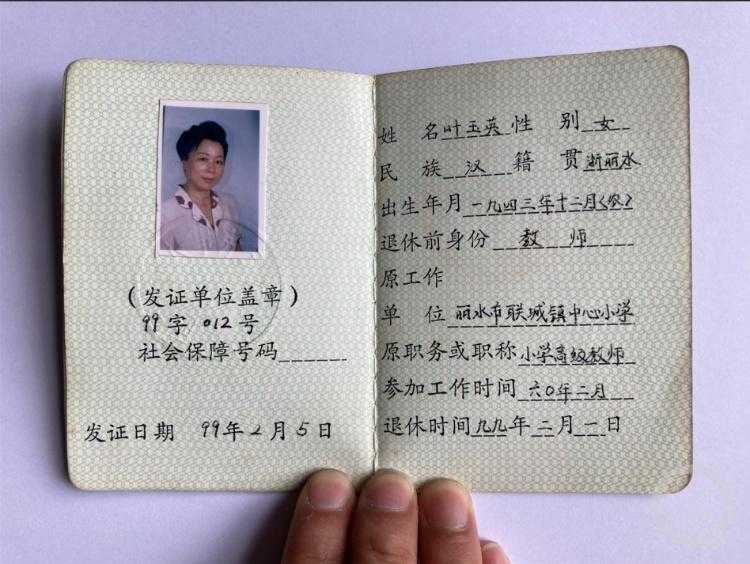 (发证单位盖章)
99字 012号
社会保障号码
发证日期 99年2月5日
姓名叶玉英性别女
民族汉籍贯浙丽水
出生年月一九四三年十二月(农)
退休前身份教师
原工作
单位丽水市联城镇中心小学
原职务或职称小学高级教师
参加工作时间六0年二月
退休时间九九年二月一日